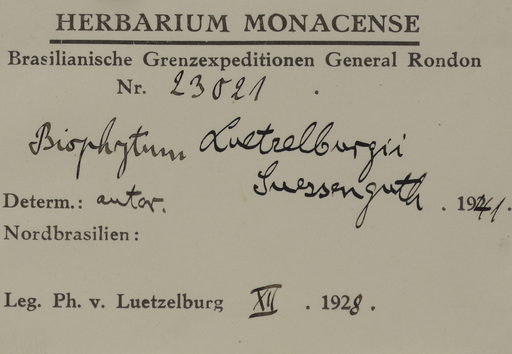 HERBARIUM MONACENSE
Brasilianische Grenzexpeditionen General Rondon
Nr. 23021.
Biophytum Luetzelburgii
Suessenguth
Determ.: autor. . 1941.
Nordbrasilien:
Leg. Ph. v. Luetzelburg XII . 1928.